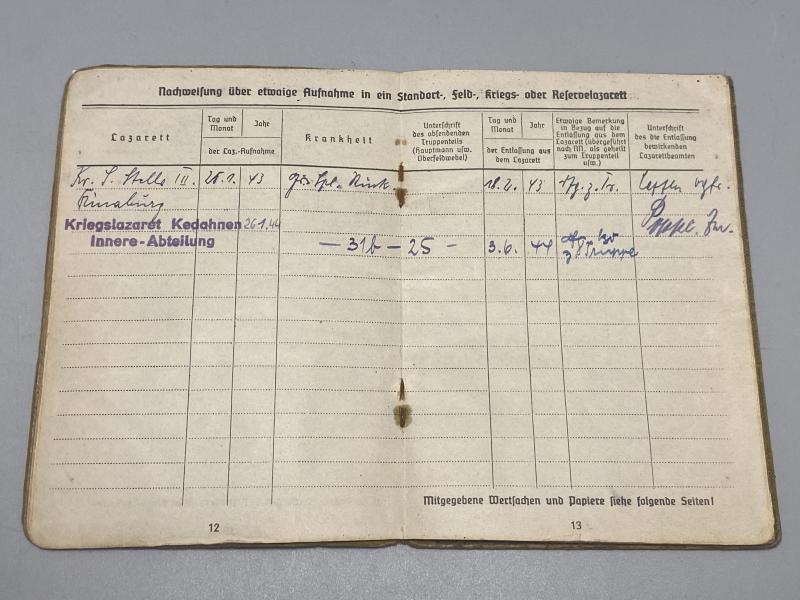 Nachweisung über etwaige Aufnahme in ein Standort-, Feld-, Kriegs- oder Reservelazarett
Lazarett
Tag und
Monat
Jahr
der Laz.-Aufnahme
Krankheit
Unterschrift
des absendenden
Truppenteils
(Hauptmann usw.
Oberfeldwebel)
Tag und
Monat
Jahr
der Entlassung aus
dem Lazarett
Etwaige Bemerkung
in Bezug auf die
Entlassung aus dem
Lazarett (übergeführt
nach NN, als geheilt
zum Truppenteil
usw.)
Unterschrift
des die Entlassung
bewirkenden
Lazarettbeamten
Kr. S. Stelle III. 43 18.2. 43
Dünaburg
Kriegslazaret Kedahnen 26.1.44
Innere-Abteilung
— 31b — 25 — 3.6. 44
z Truppe
Mitgegebene Wertsachen und Papiere siehe folgende Seiten!
12
13